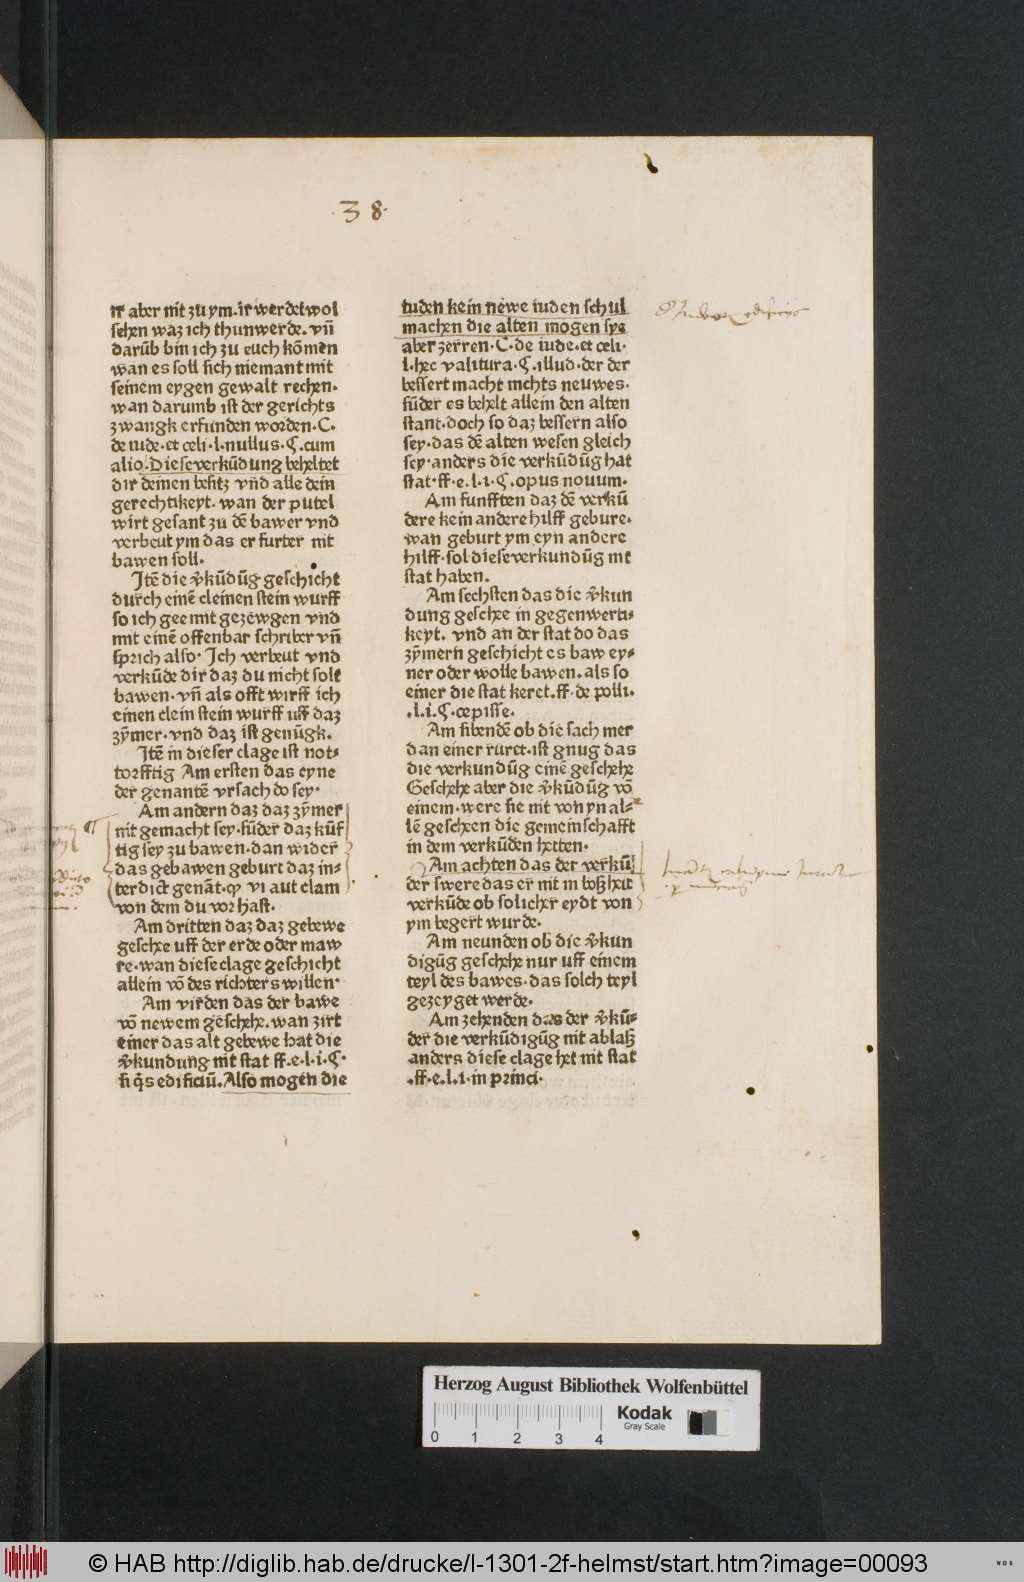 .38.
ir aber nit zu ym. ir werdet wol
sehen waz ich thun werde. vñ
darūb bin ich zu euch kōmen
wan es soll sich niemant mit
seinem eygen gewalt rechen.
wan darumb ist der gerichts
zwangk erfunden worden. C.
de iude. et celi. l. nullus. ϛ. cum
alio. Diese verkūdung beheltet
dir deinen besitz vñd alle dein
gerechtikeyt. wan der putel
wirt gesant zu dē bawer vnd
verbeut ym das er furter nit
bawen soll.
Itē die v̄kūdūg geschicht
durch einē cleinen stein wurff
so ich gee mit gezewgen vnd
mit einē offenbar schriber vñ
sprich also. Ich verbeut vnd
verkūde dir daz du nicht solt
bawen. vñ als offt wirff ich
einen clein stein wurff uff daz
zȳmer. vnd daz ist genūgk.
Itē in dieser clage ist not:
torfftig Am ersten das eyne
der genantē vrsach do sey.
Am andern daz daz zȳmer
nit gemacht sey. sūder daz kūf
tig sey zu bawen. dan wider
das gebawen geburt daz in-
terdict genāt. qͥ vi aut clam
von dem du vor hast.
Am dritten daz daz gebewe
geschee uff der erde oder maw
re. wan diese clage geschicht
allein vō des richters willen.
Am virden das der bawe
vō newem geschehe. wan zirt
einer das alt gebewe hat die
v̄kundung nit stat ff. e. l. i. ϛ.
si q̄s edificiū. Also mogen die
iuden kein newe iuden schul
machen die alten mogen sye
aber zerren. C. de iude. et celi.
l. hec valitura. ϛ. illud. der der
bessert macht nichts neuwes.
sūder es behelt allein den alten
stant. doch so daz bessern also
sey. das dē alten wesen gleich
sey. anders die verkūdūg hat
stat. ff. e. l. i. ϛ. opus nouum.
Am funfften daz dē verkū
dere kein andere hilff gebure.
wan geburt ym eyn andere
hilff. sol diese verkundūg nit
stat haben.
Am sechsten das die v̄kun
dung geschee in gegenwerti-
keyt. vnd an der stat do das
zȳmern geschicht es baw ey-
ner oder wolle bawen. als so
einer die stat keret. ff. de polli.
.l. i. ϛ. cepisse.
Am sibendē ob die sach mer
dan einer ruret. ist gnug das
die verkundūg einē geschehe
Geschehe aber die v̄kūdūg vō
einem. were sie nit von yn al-
lē gescheen die gemeinschafft
in dem verkūden hetten.
Am achten das der verkū
der swere das er nit in boßheit
verkūde ob solicher eydt von
ym begert wurde.
Am neunden ob die v̄kun
digūg geschehe nur uff einem
teyl des bawes. das solch teyl
gezeyget werde.
Am zehenden das der v̄kū-
der die verkūdigūg nit ablaß
anders diese clage het nit stat
.ff. e. l. i. in princi.
Herzog August Bibliothek Wolfenbüttel
Kodak
Gray Scale
0 1 2 3 4
© HAB http://diglib.hab.de/drucke/l-1301-2f-helmst/start.htm?image=00093
WDB